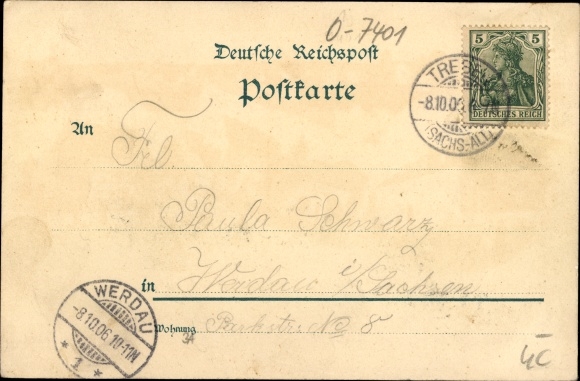 O-7401
Deutsche Reichspost
Postkarte
5 5
DEUTSCHES REICH
TREBEN
-8.10.06.
(SACHS.-ALT.)
An
Frl.
Paula Schwarz
in Werdau i/Sachsen
Wohnung Parkstr. No 8
WERDAU
-8.10.06.10-11N
* 1 *